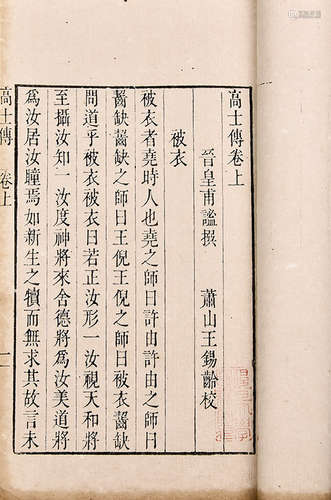 高士傳卷上
晉皇甫謐撰 蕭山王錫齡校
被衣
被衣者堯時人也堯之師曰許由許由之師曰
齧缺齧缺之師曰王倪王倪之師曰被衣齧缺
問道乎被衣被衣曰若正汝形一汝視天和將
至攝汝知一汝度神將來舍德將爲汝美道將
爲汝居汝瞳焉如新生之犢而無求其故言未
高士傳 卷上 一